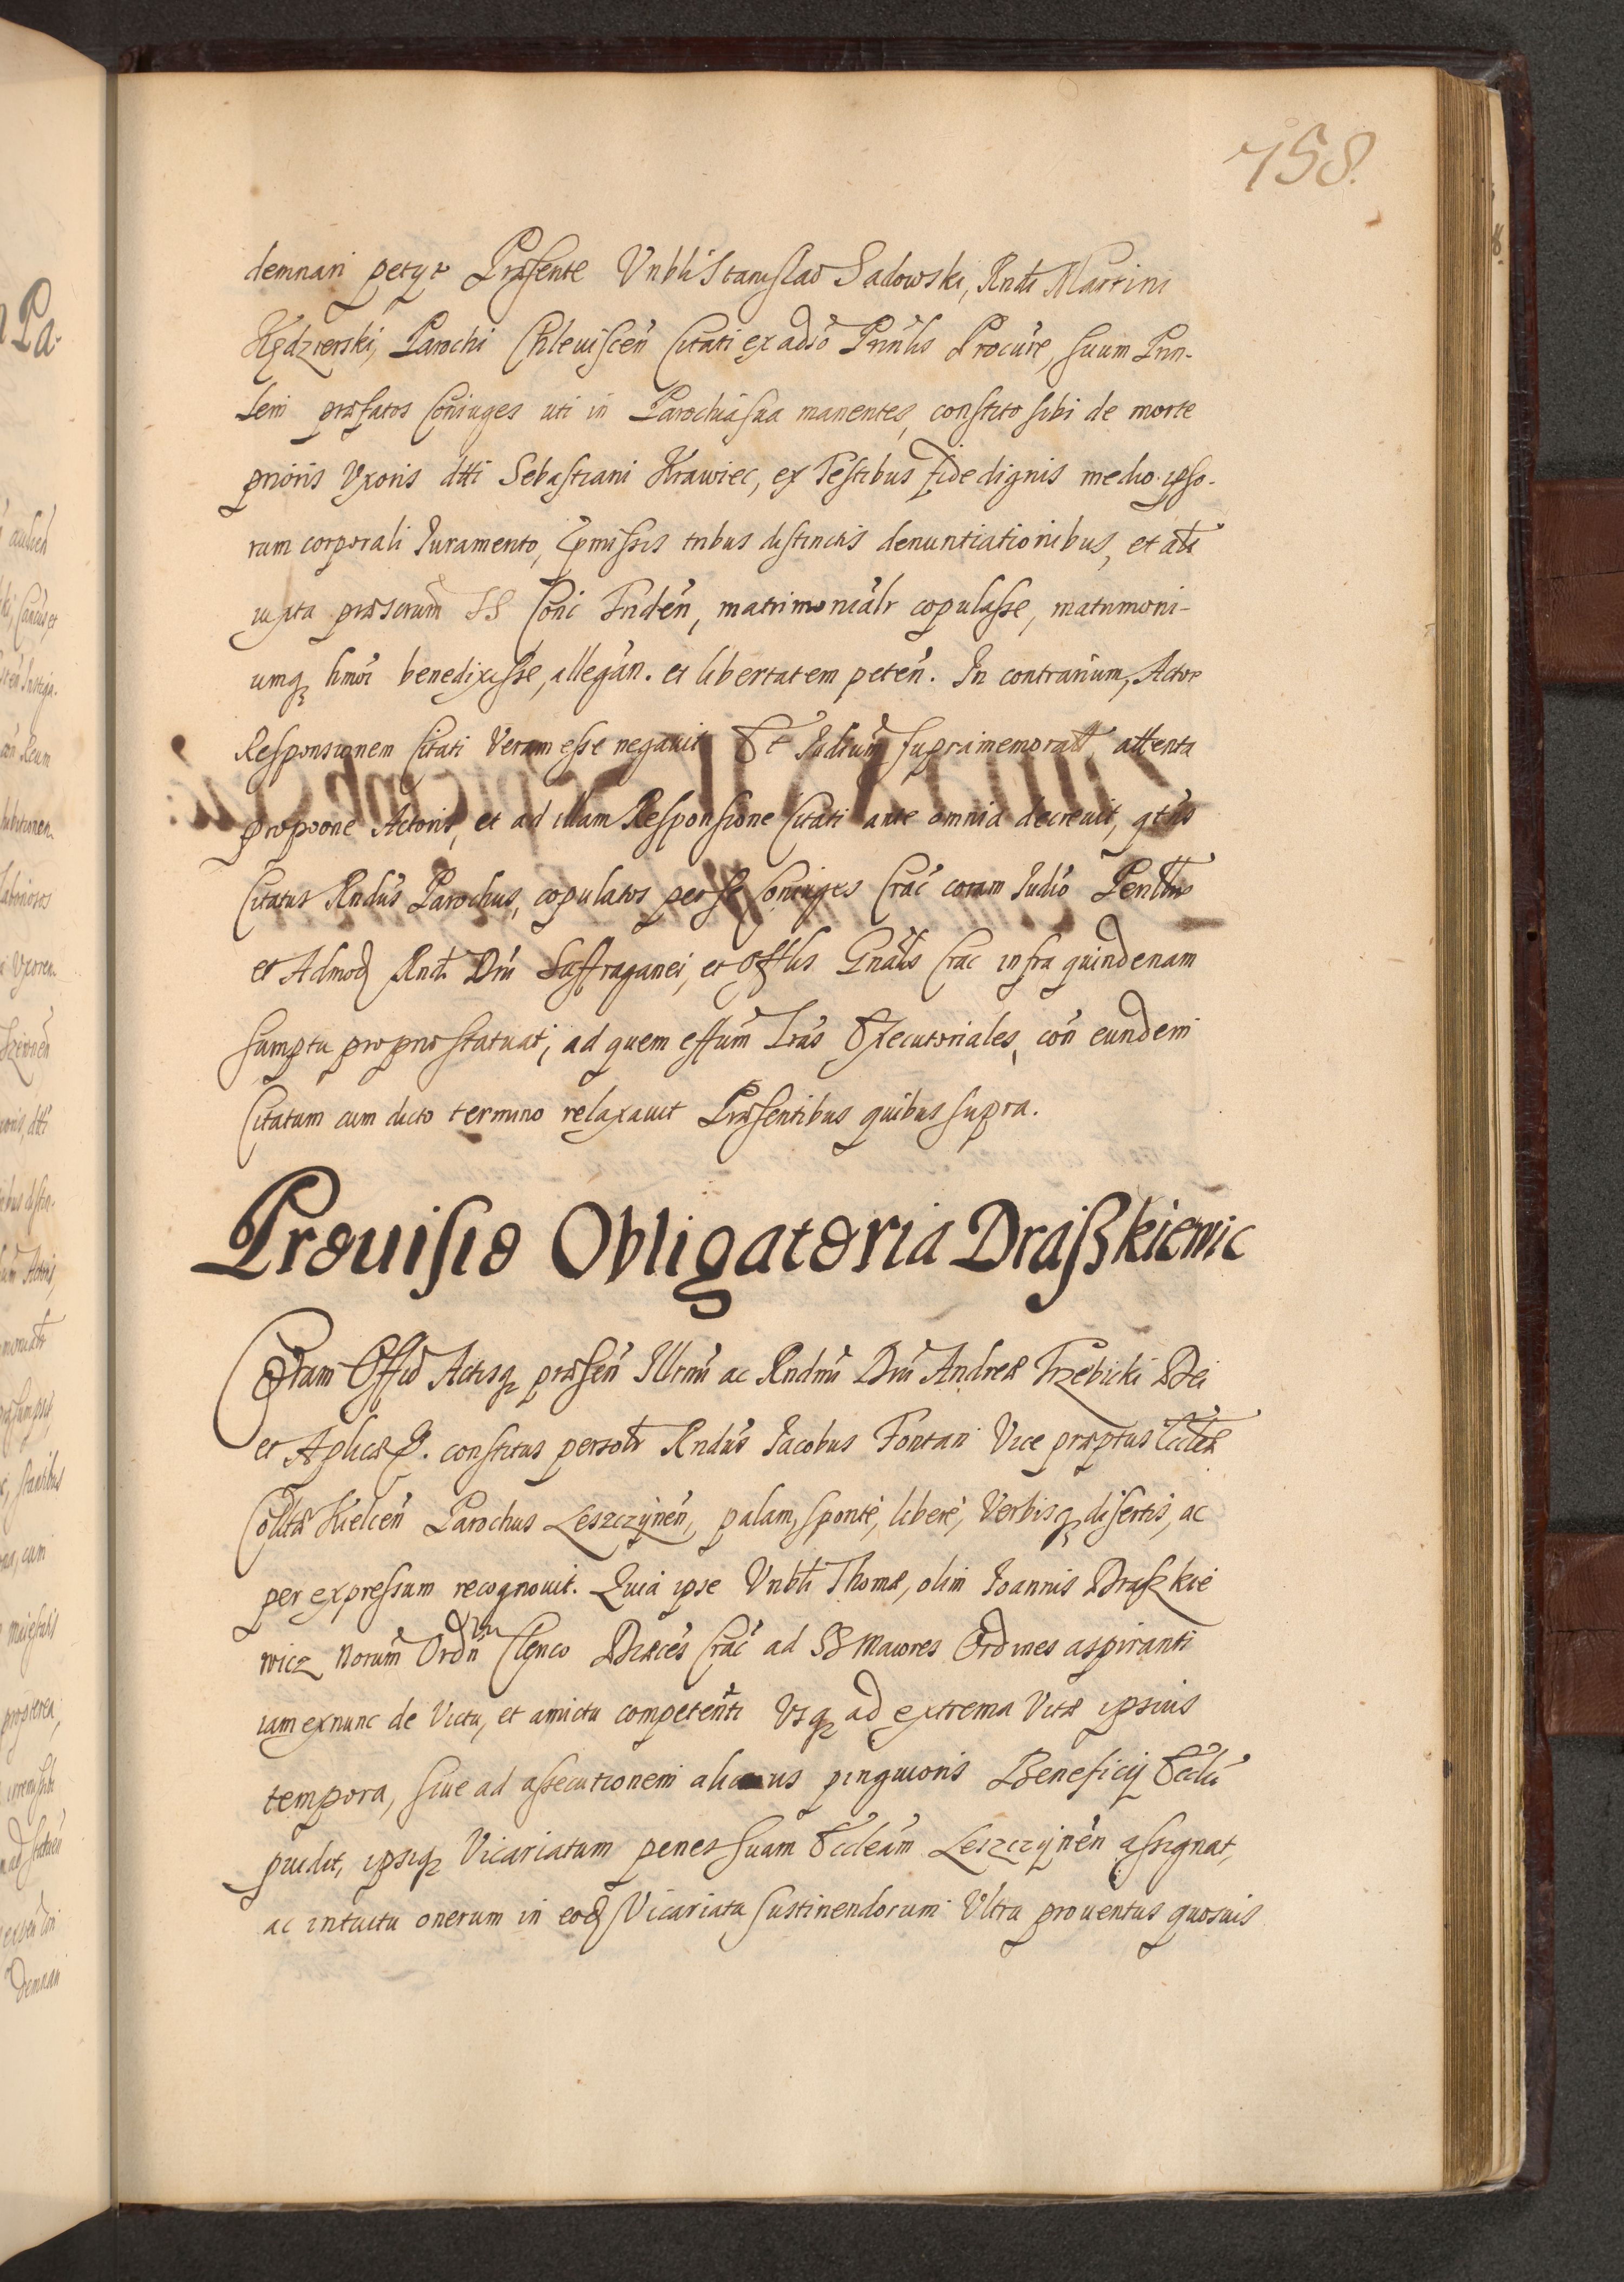 758.
demnari petyt Præsente Vnbli Stanislao Sadowski, Rndi Martini
Kędzierski, Parochi Chleviscen̄ Citati ex adso Prin̄lis Procūre, suum Prin-
lem præfatos Coniuges uti in Parochia sua manentes, constito sibi de morte
prioris Vxoris dtti Sebastiani Krawiec, ex Testibus fide dignis medio ipso-
rum corporali Iuramento, pmissis tribus distinctis denuntiationibus, et
iuxta præscrum SS Conc Triden̄, matrimonialr copulasse, matrimoni-
umq hmoi benedixisse, allegan. et libertatem peten̄. In contrarium, Actor
Responsionem Citati Veram esse negavit Et Iudium supramemorat attenta
propoone Actoris, et ad illam Responsione Citati ante omnia decrevit, qtus
Citatus Rndus Parochus, copulatos per se Coniuges Crac coram Iudio
et Admod Rndi Dni Suffraganei, et Offlis Gnalis Crac infra quindenam
sumptu proprio statuat, ad quem effum Lras Executoriales, con eundem
Citatum cum dicto termino relaxavit Præsentibus quibus supra.
Provisio Obligatoria Draszkiewic
Coram Offio Actisq præsen̄ Illrmi ac Rndmi Dni Andreæ Trzebicki Dei
et Aplicæ S. constitus personlr Rndus Iacobus Fontani Vice præptus Eccleæ
Colltæ Kielcen̄ Parochus Leszczynen̄, palam, sponte, libere, Verbisq disertis, ac
per expressum recognovit. Quia ipse Vnbli Thomæ, olim Ioannis Draszkie
wicz Norum Ordin̄ Clerico Diæces Crac ad SS Maiores Ordines aspiranti
iam exnunc de Victu, et amictu competenti Vsq ad extrema Vitæ ipsius
tempora, sive ad assecutionem alicuius pinguioris Beneficij Ecclci
pvidit, ipsiq Vicariatum penes suam Eccleam Leszczynen̄ assignat,
ac intuitu onerum in eod Vicariatu sustinendorum Vltra proventus quosuis